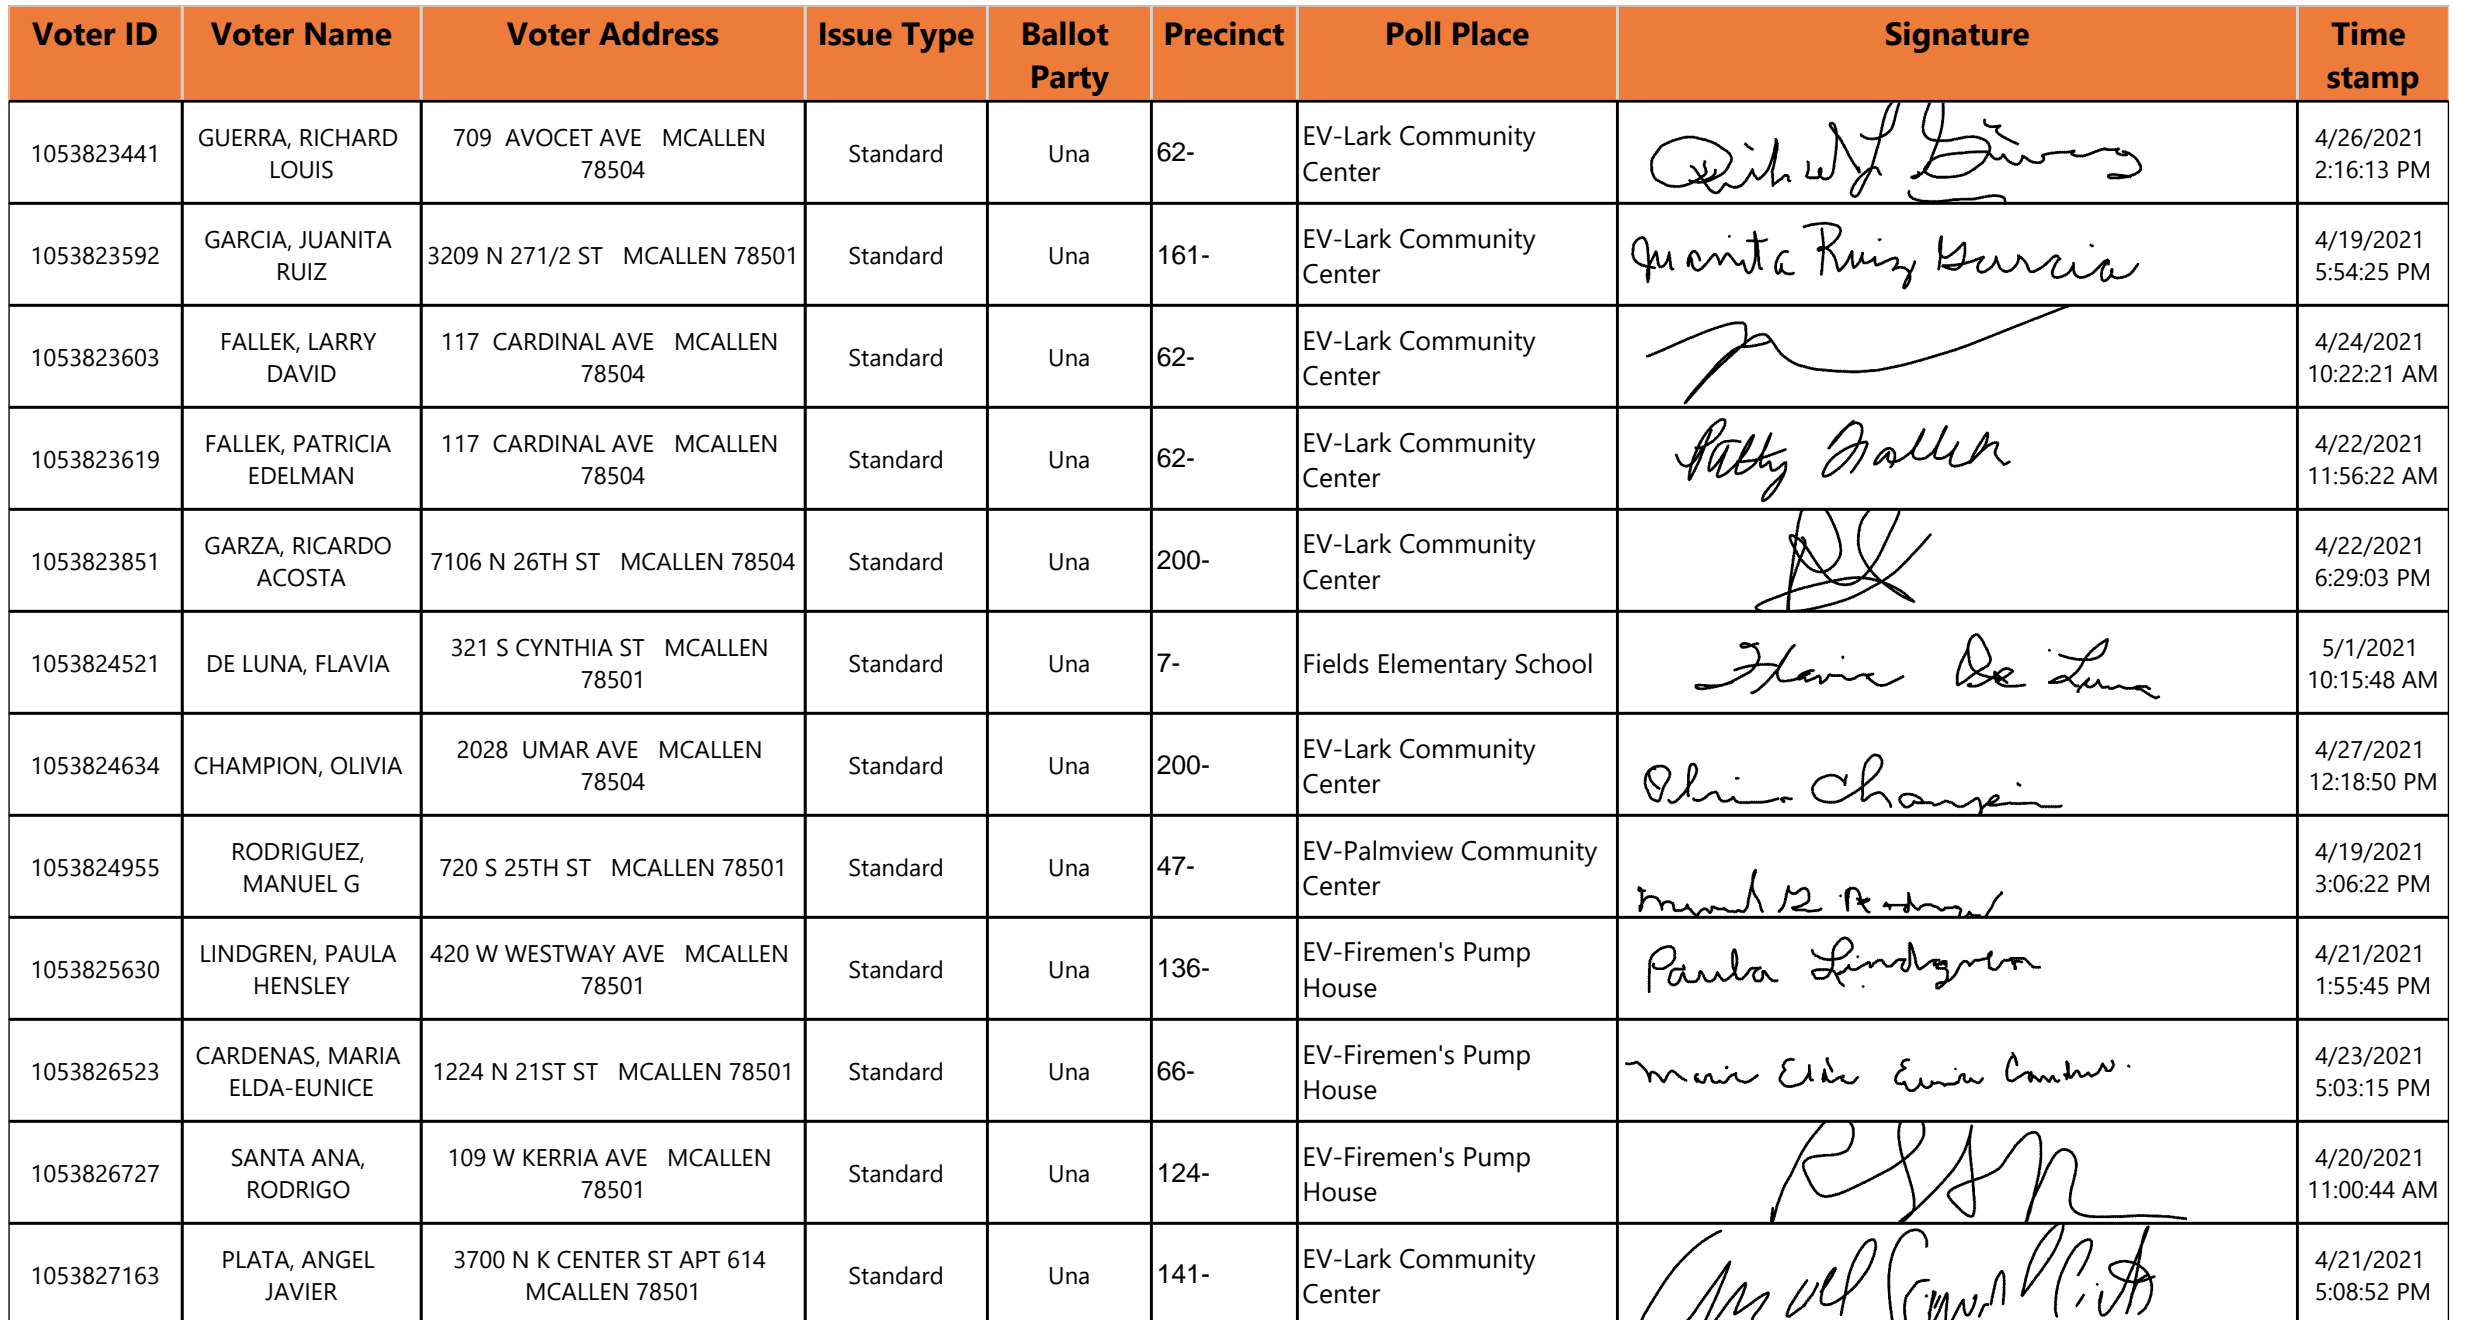 Voter ID Voter Name Voter Address Issue Type Ballot Party Precinct Poll Place Signature Time stamp
1053823441 GUERRA, RICHARD LOUIS 709 AVOCET AVE MCALLEN 78504 Standard Una 62- EV-Lark Community Center 4/26/2021 2:16:13 PM
1053823592 GARCIA, JUANITA RUIZ 3209 N 271/2 ST MCALLEN 78501 Standard Una 161- EV-Lark Community Center Juanita Ruiz Garcia 4/19/2021 5:54:25 PM
1053823603 FALLEK, LARRY DAVID 117 CARDINAL AVE MCALLEN 78504 Standard Una 62- EV-Lark Community Center 4/24/2021 10:22:21 AM
1053823619 FALLEK, PATRICIA EDELMAN 117 CARDINAL AVE MCALLEN 78504 Standard Una 62- EV-Lark Community Center Patty Fallek 4/22/2021 11:56:22 AM
1053823851 GARZA, RICARDO ACOSTA 7106 N 26TH ST MCALLEN 78504 Standard Una 200- EV-Lark Community Center 4/22/2021 6:29:03 PM
1053824521 DE LUNA, FLAVIA 321 S CYNTHIA ST MCALLEN 78501 Standard Una 7- Fields Elementary School Flavia De Luna 5/1/2021 10:15:48 AM
1053824634 CHAMPION, OLIVIA 2028 UMAR AVE MCALLEN 78504 Standard Una 200- EV-Lark Community Center Olivia Champion 4/27/2021 12:18:50 PM
1053824955 RODRIGUEZ, MANUEL G 720 S 25TH ST MCALLEN 78501 Standard Una 47- EV-Palmview Community Center 4/19/2021 3:06:22 PM
1053825630 LINDGREN, PAULA HENSLEY 420 W WESTWAY AVE MCALLEN 78501 Standard Una 136- EV-Firemen's Pump House Paula Lindgren 4/21/2021 1:55:45 PM
1053826523 CARDENAS, MARIA ELDA-EUNICE 1224 N 21ST ST MCALLEN 78501 Standard Una 66- EV-Firemen's Pump House Maria Elda Eunice Cardenas 4/23/2021 5:03:15 PM
1053826727 SANTA ANA, RODRIGO 109 W KERRIA AVE MCALLEN 78501 Standard Una 124- EV-Firemen's Pump House 4/20/2021 11:00:44 AM
1053827163 PLATA, ANGEL JAVIER 3700 N K CENTER ST APT 614 MCALLEN 78501 Standard Una 141- EV-Lark Community Center 4/21/2021 5:08:52 PM